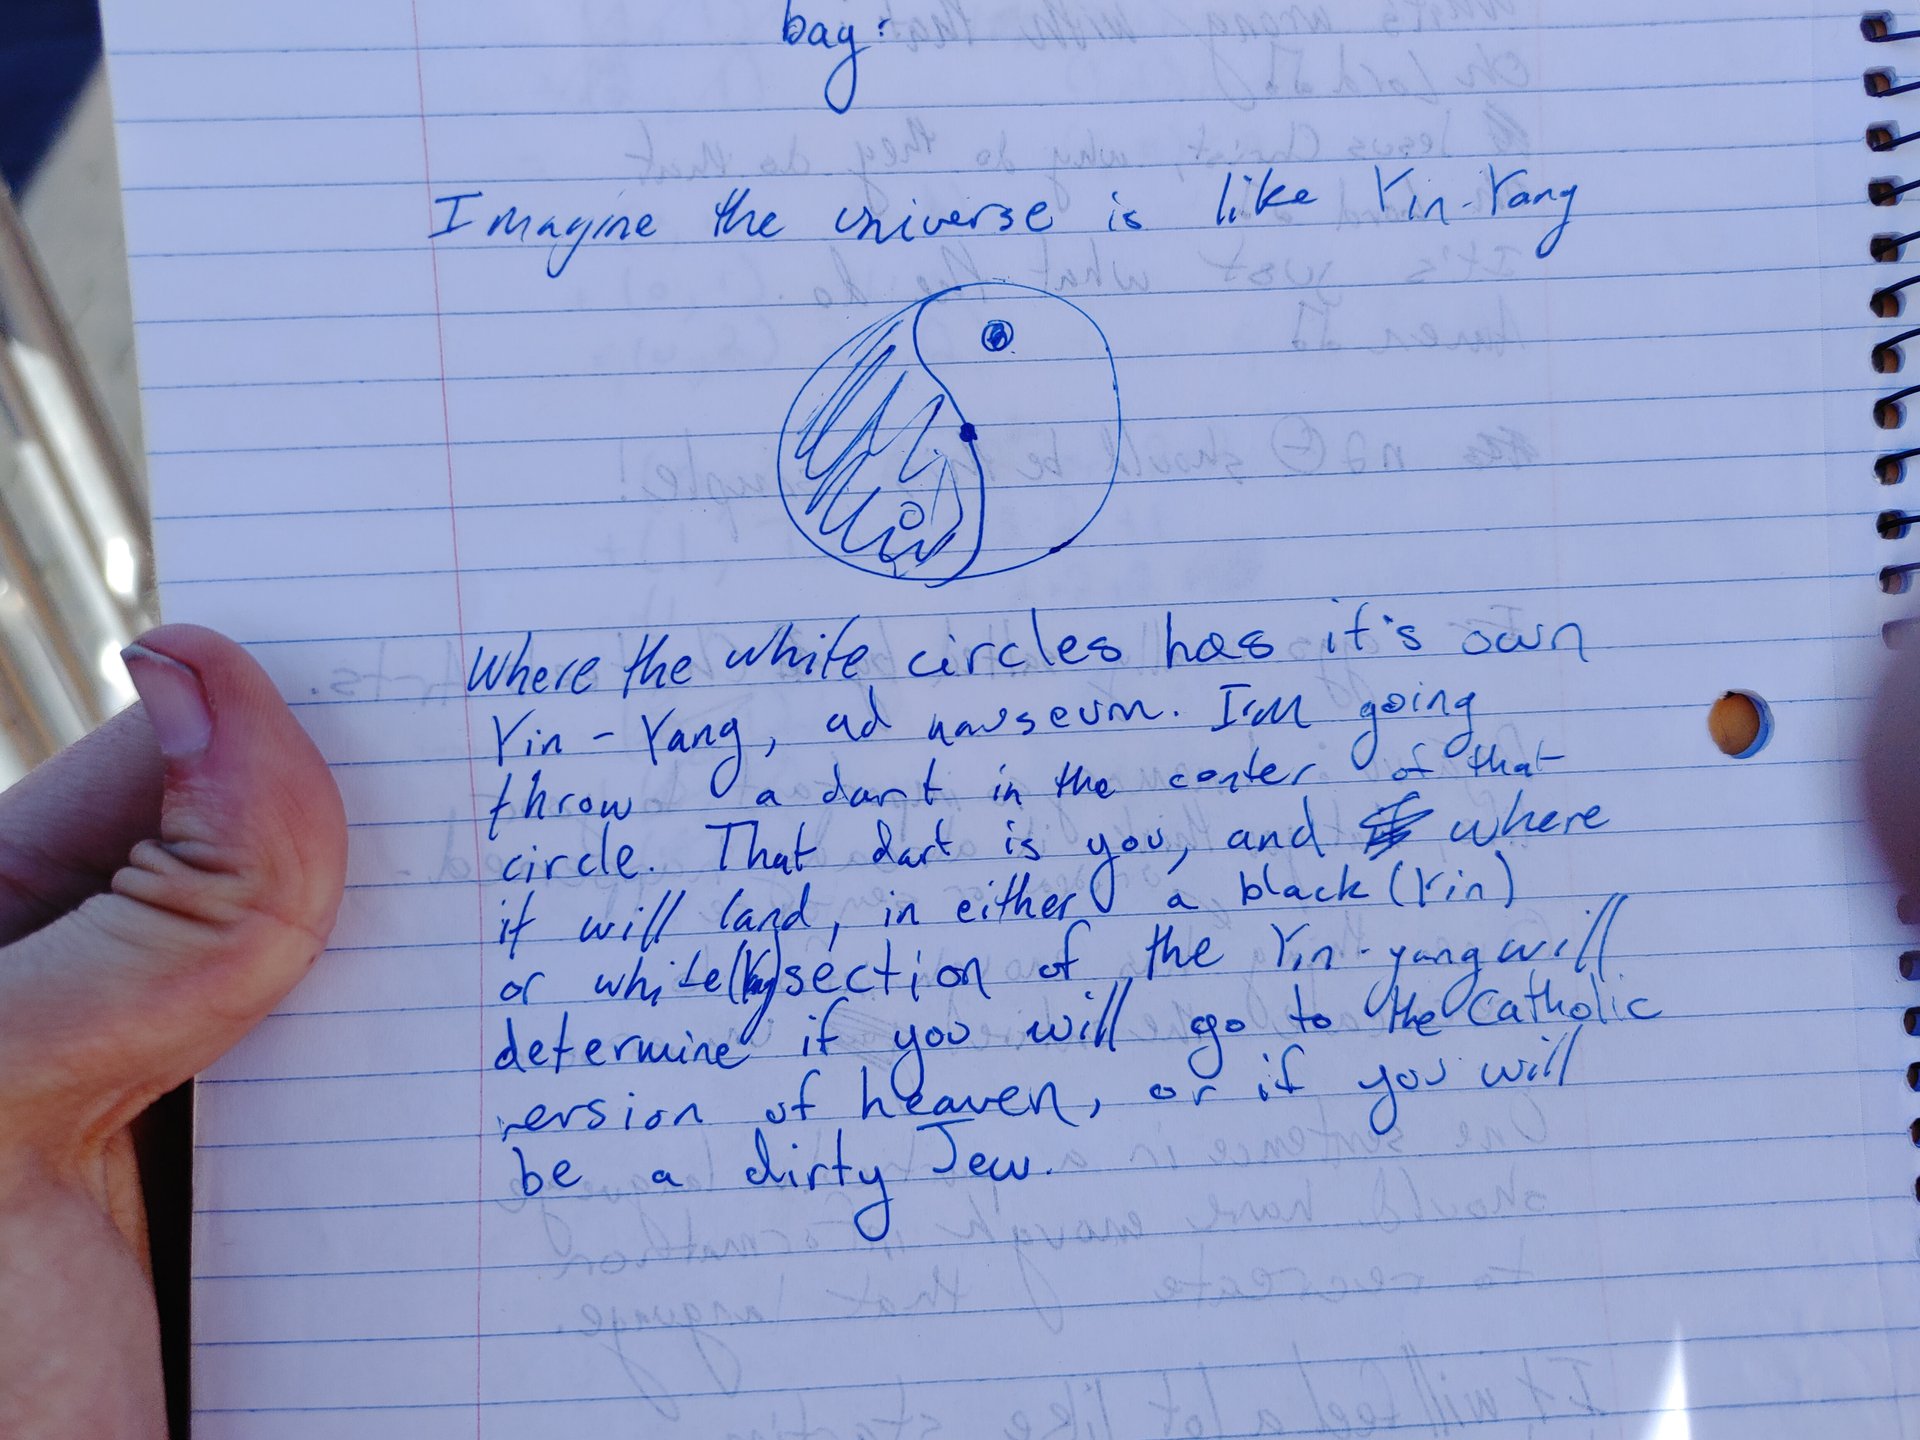 bag:
Imagine the universe is like Yin-Yang
Where the white circles has it's own
Yin - Yang, ad nauseum. I'm going
throw a dart in the center of that
circle. That dart is you, and where
it will land, in either a black (Yin)
or white section of the Yin-yang will
determine if you will go to the Catholic
version of heaven, or if you will
be a dirty Jew.